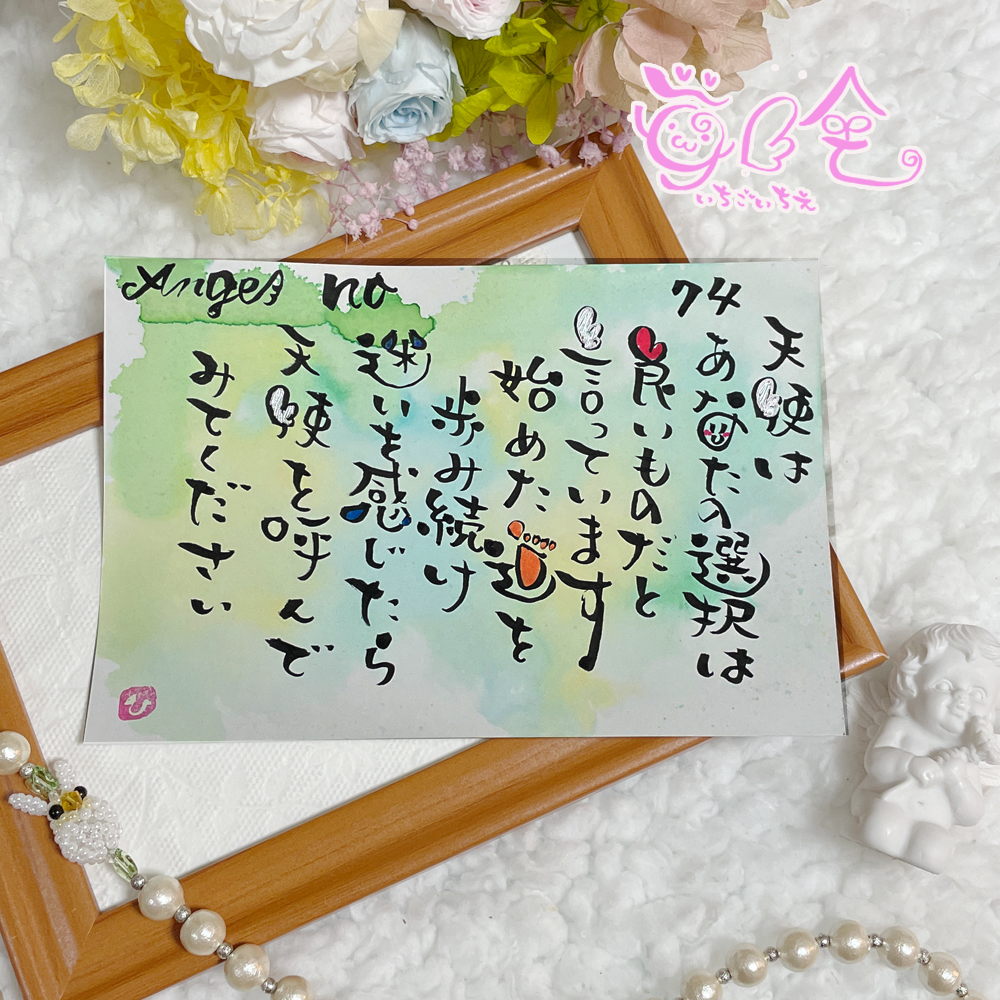 Angel no
74
天使は
あなたの選択は
良いものだと
言っています
始めた道を
歩み続け
迷いを感じたら
天使を呼んで
みてください
いちごいちえ